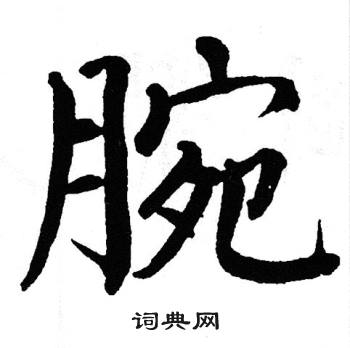 腕
词典网